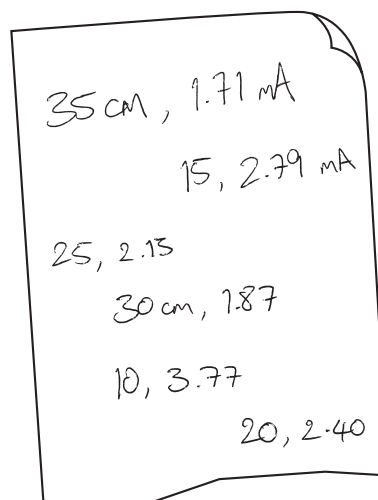 35 cm, 1.71 mA
15, 2.79 mA
25, 2.15
30 cm, 1.87
10, 3.77
20, 2.40